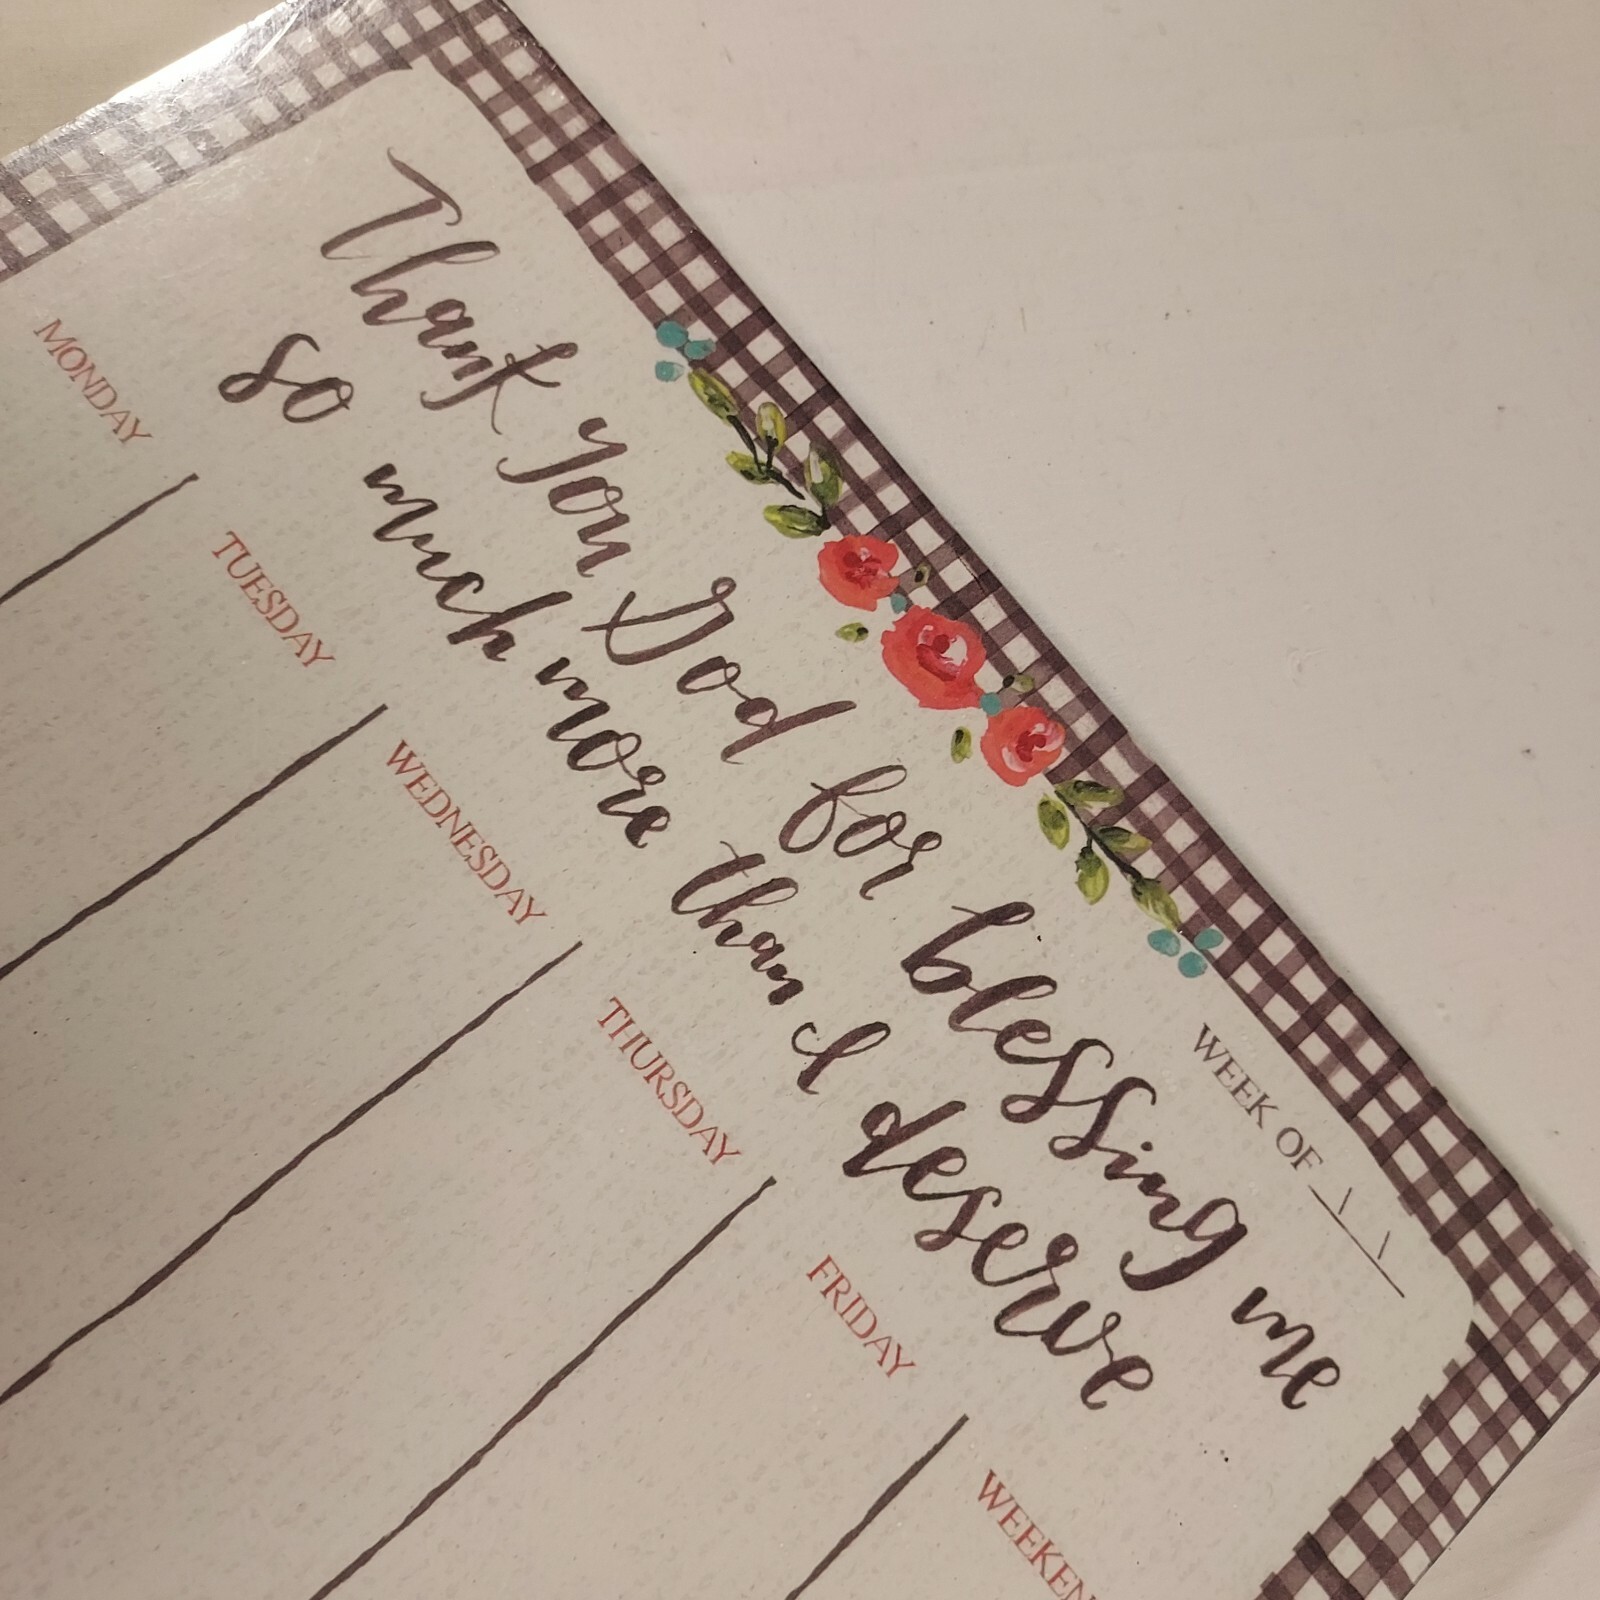 WEEK OF
Thank you God for blessing me
so much more than I deserve
MONDAY
TUESDAY
WEDNESDAY
THURSDAY
FRIDAY
WEEKEN